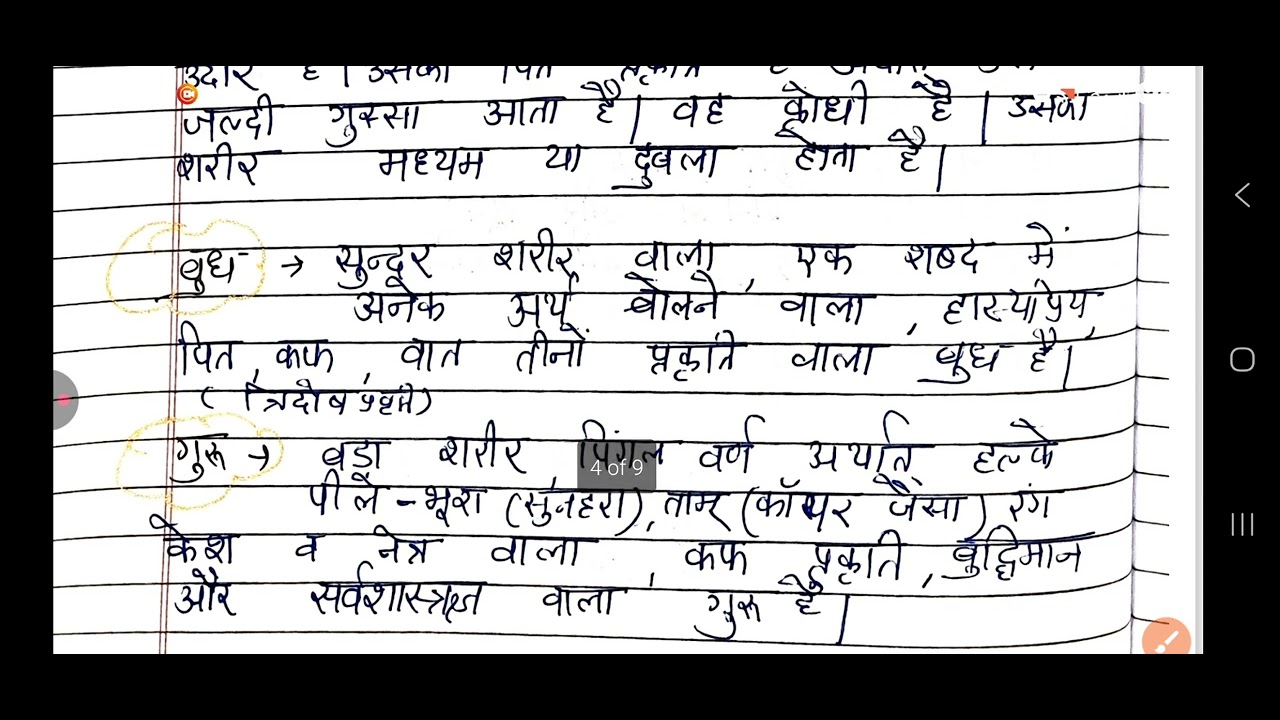 उदार है। उसकी पित प्रकृति है अर्थात उसे
जल्दी गुस्सा आता है। वह क्रोधी है। उसका
शरीर मध्यम या दुबला होता है।
बुध → सुन्दर शरीर वाला, एक शब्द में
अनेक अर्थ बोलने वाला, हास्यप्रिय,
पित, कफ, वात तीनों प्रकृति वाला बुध है।
(त्रिदोष प्रकृति)
गुरू → बड़ा शरीर, पिंगल वर्ण अर्थात हल्के
4 of 9
पीले-भूरा (सुनहरा), ताम्र (कॉपर जैसा) रंग
केश व नेत्र वाला, कफ प्रकृति, बुद्धिमान
और सर्वशास्त्रज्ञ वाला गुरू है।